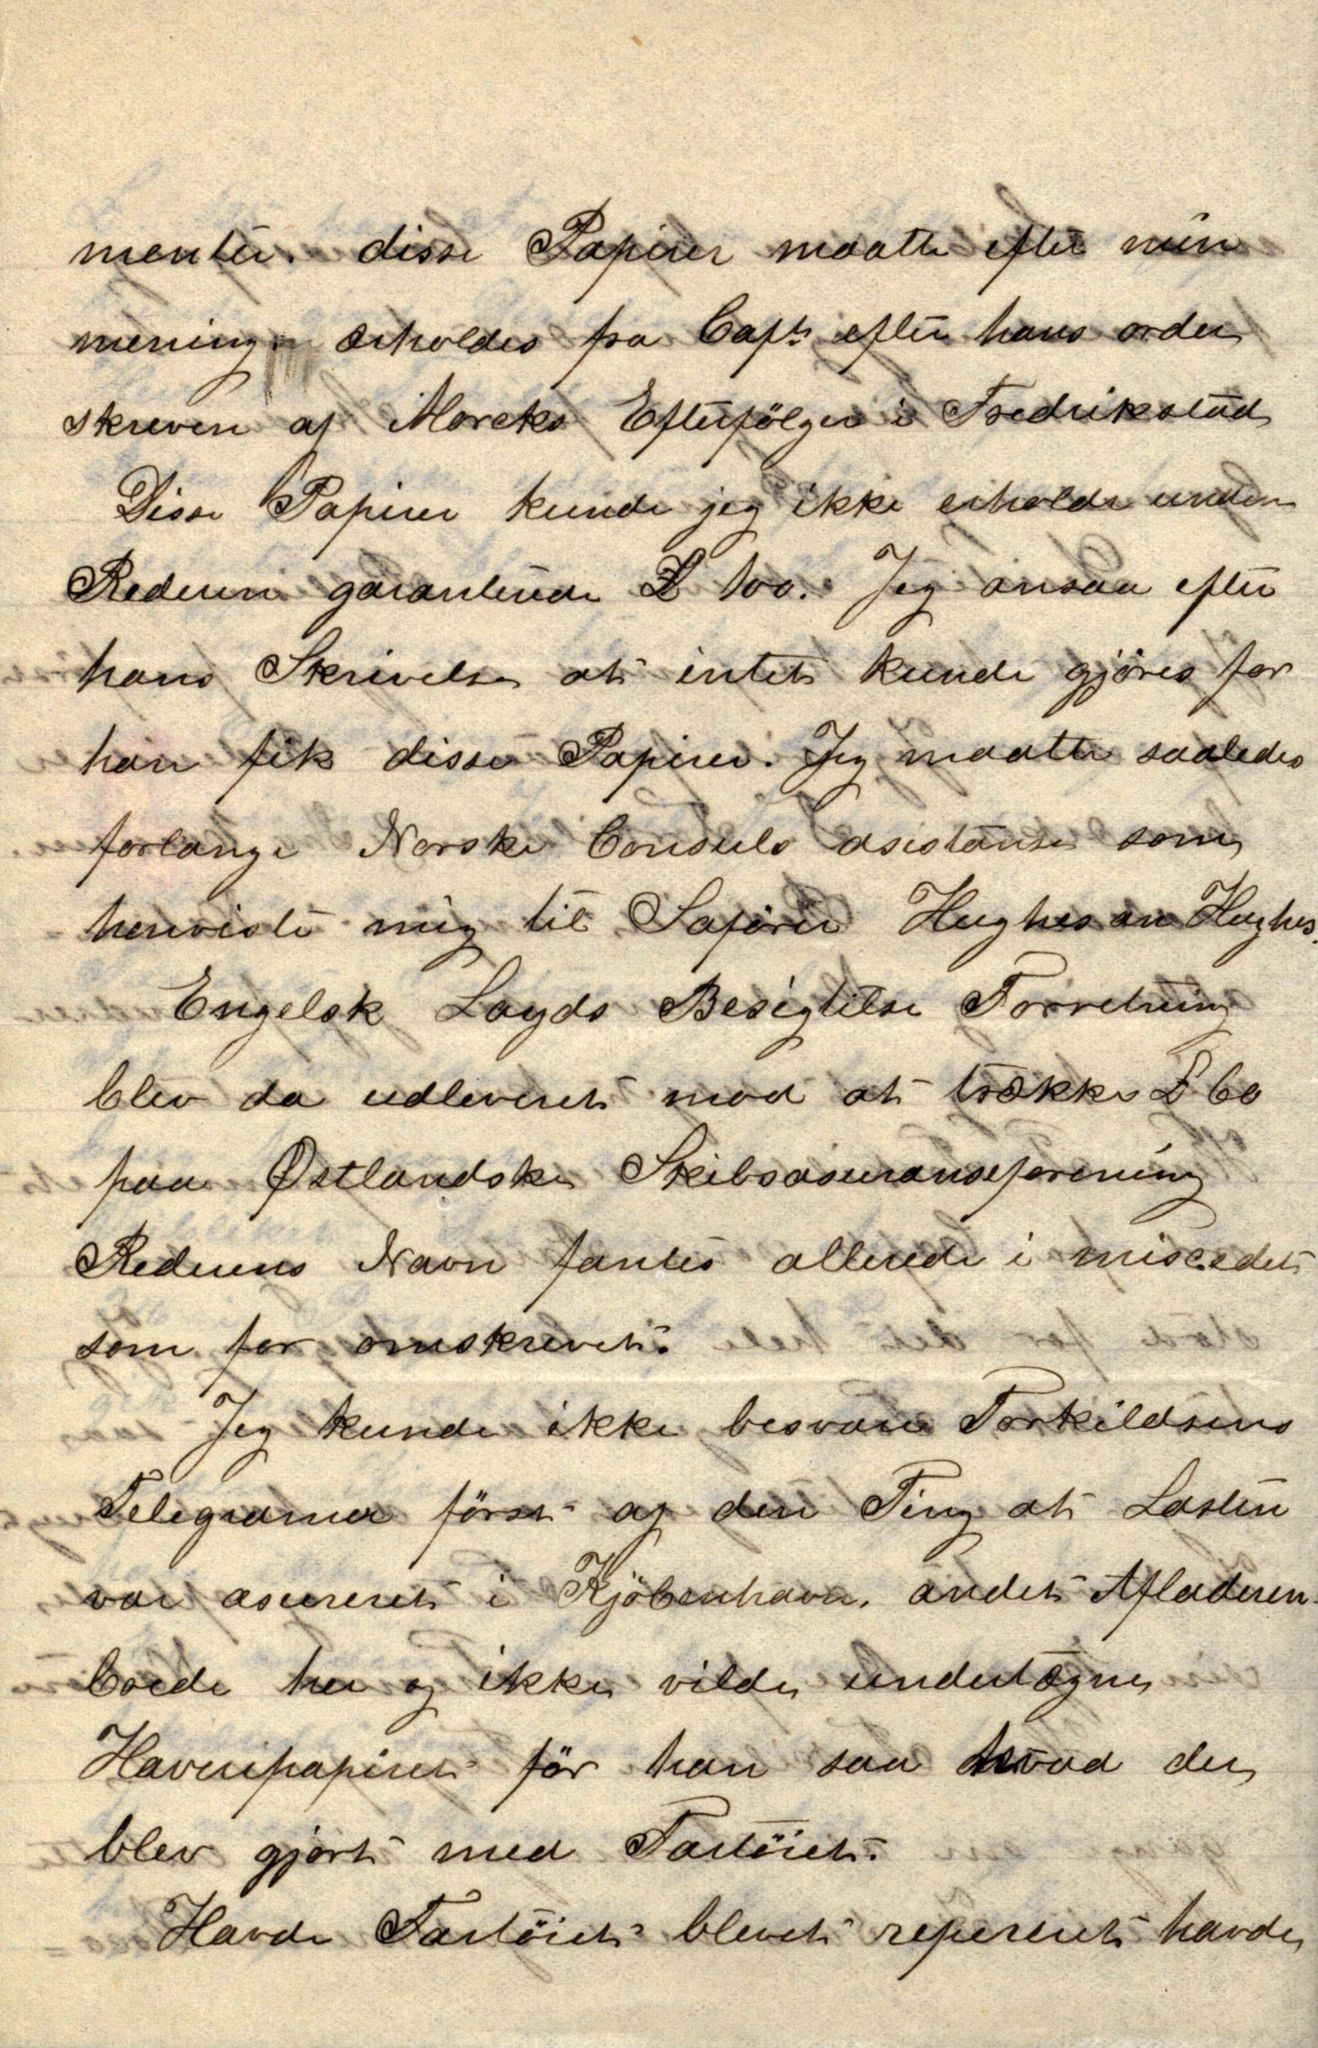 menter. disse Papirer maatte efter min
mening erholdes fra Capt. efter hans order
skreven af Morcks Efterfölger i Fredrikstad
Disse Papirer kunde jeg ikke erholde uden
Rederen garanterede £ 100. Jeg ansaa efter
hans Skrivelse at intet kunde gjöres for
han fik disse Papirer. Jeg maatte saaledes
forlange Norske Consuls asistanse som
henviste mig til Saförer Hughes an Hughes.
Engelsk Loyds Besigtilse Forretning
blev da udleveret mod at trække £ 60
paa Østlandske Skibsasuranseforening
Rederens Navn fantes allerede i
som for omskrevet.
Jeg kunde ikke besvare Torkildsens
Telegramer först af den Ting at Lasten
var asureret i Kjöbenhavn. andet Afladeren
boede her og ikke vilde undertegne
Havenipapiret för han saa hvad der
blev gjort med Fartöiet.
Havde Fartöiet blevet reperert havde